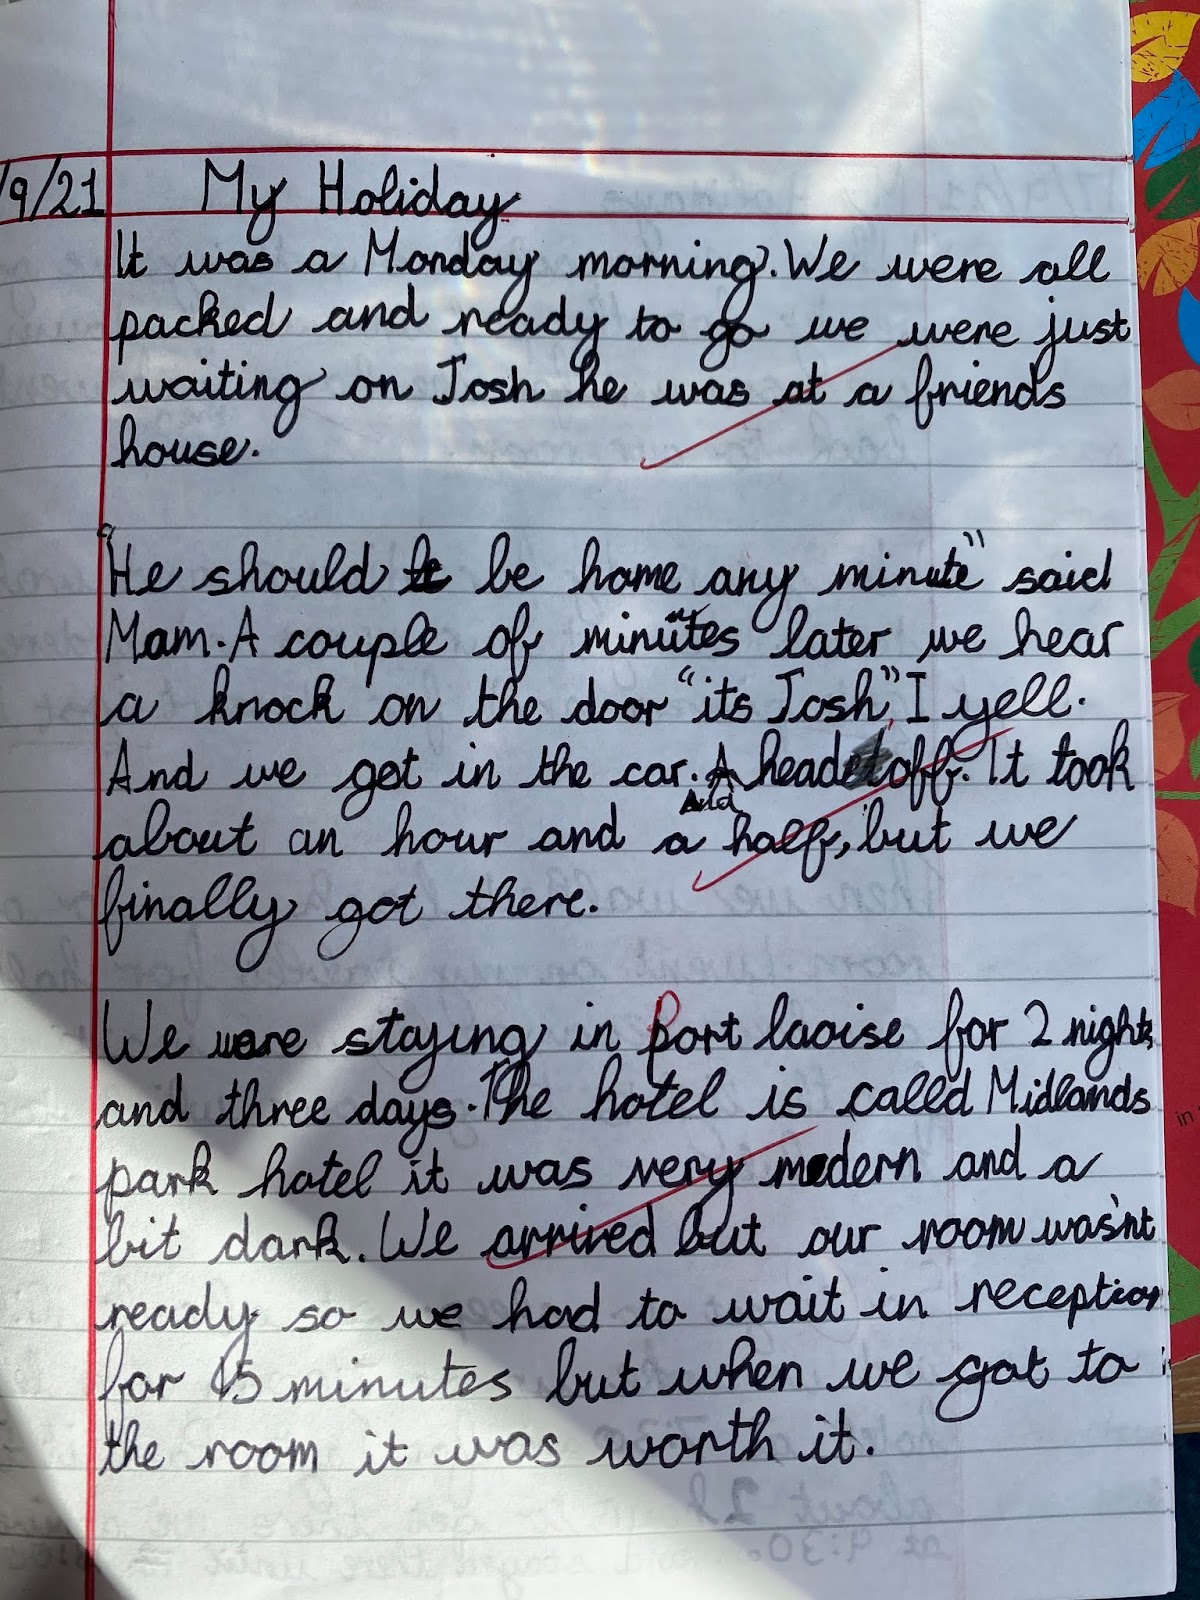 /9/21 My Holiday
It was a Monday morning. We were all
packed and ready to go we were just
waiting on Josh he was at a friends
house.
"He should be home any minute" said
Mam. A couple of minutes later we hear
a knock on the door "its Josh", I yell.
And we got in the car. And head off. It took
about an hour and a half, but we
finally got there.
We were staying in Port laoise for 2 nights
and three days. The hotel is called Midlands
park hotel it was very modern and a
bit dark. We arrived but our room was'nt
ready so we had to wait in reception
for 15 minutes but when we got to
the room it was worth it.
in